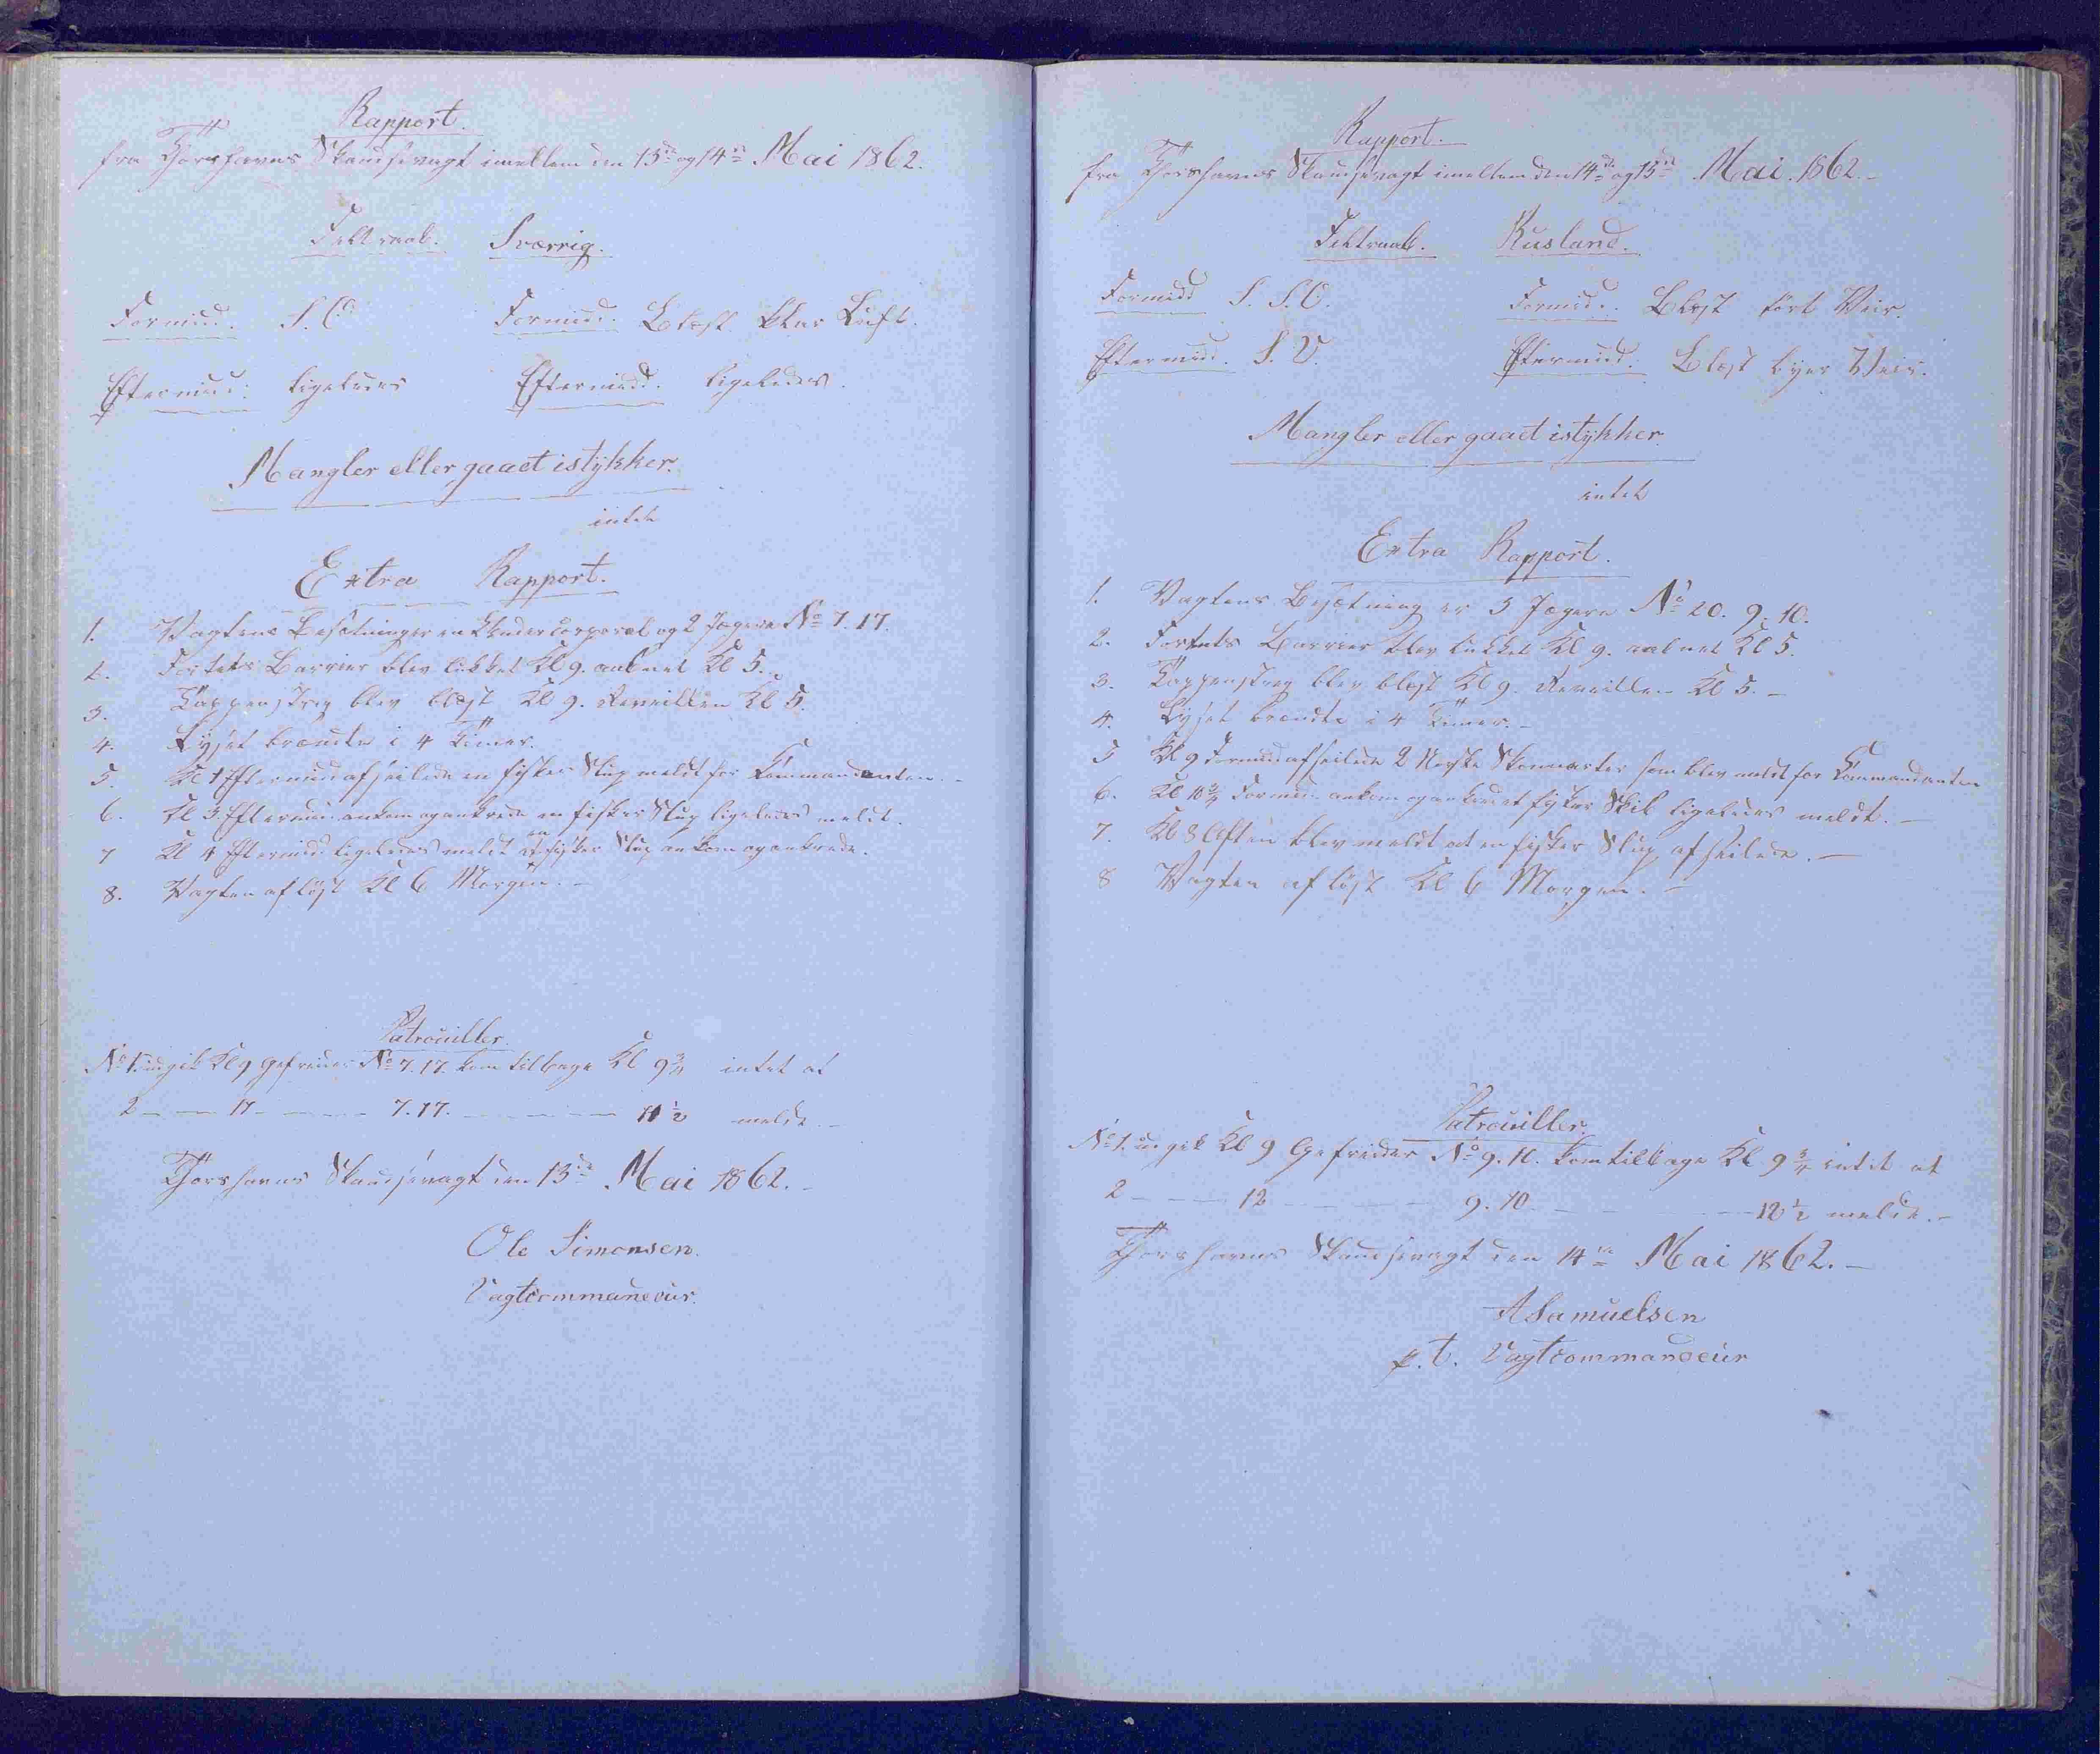 Rapport.
fra Thorshavns Skandsevagt imellem den 13de og 14de Mai 1862.
Feltraab. Sverrig.
Formidd. S.O. Formidd. Blæst klar Luft.
Eftermidd: ligeledes Eftermidd. ligeledes.
Mangler eller gaaet istykker.
intet
Extra Rapport.
1. Vagtens Besætning er en Undercorporal og 2 Jægere No 7. 17.
2. Fortets Barrier blev lukket Kl 9. aabnet Kl 5.
3. Tappenstreg blev blæst Kl 9. Reveillen Kl 5.
4. Lyset brændte i 4 Timer.
5. Kl 1 Eftermidd afseilede en fisker Slup meldt for Kommandanten.-
6. Kl 3 Eftermid. ankom og ankrede en fisker Slup ligeledes meldt.
7 Kl 4 Eftermidd ligeledes meldt en fisker Slup ankom og ankrede.
8. Vagten afløst Kl 6 Morgen.-
Patrouiller.
No 1. udgik Kl 9 Gefreider No 7. 17. kom tilbage Kl 9 3/4 intet at
2 - - 11 - - - 7. 17. - - - - 11 1/2 melde.-
Thorshavns Skandsevagt den 13de Mai 1862.-
Ole Simonsen.
Vagtcommandeur.
Rapport.-
fra Thorshavns Skandsevagt imellem den 14de og 15de Mai. 1862.-
Feltraab. Rusland.
Formidd S. S.O. Formidd. Blæst tört Veir.
Eftermidd. S. V. Eftermidd. Blæst byer Veir.
Mangler eller gaaet istykker.
intet
Extra Rapport.
1. Vagtens Besætning er 3 Jægere No 20. 9. 10.
2. Fortets Barrier blev lukket Kl 9. aabnet Kl 5.
3. Tappenstreg blev blæst Kl 9. Reveillen Kl 5.-
4. Lyset brændte i 4 Timer.-
5 Kl 9 Formidd afseilede 2 Norske Skonnerter som blev meldt for Kommandanten
6. Kl 10 3/4 Formidd ankom og ankrede et fisker Skib ligeledes meldt.-
7. Kl 8 Aften blev meldt at en fisker Slup afseilede.-
8 Vagten afløst Kl 6 Morgen.-
Patrouiller.
No 1. udgik Kl 9 Gefreider No 9. 10. kom tilbage Kl 9 3/4 intet at
2 - - - 12 - - - - 9. 10 - - - - 12 1/2 melde.-
Thorshavns Skandsevagt den 14de Mai 1862.-
A Samuelsen
p.t. Vagtcommandeur